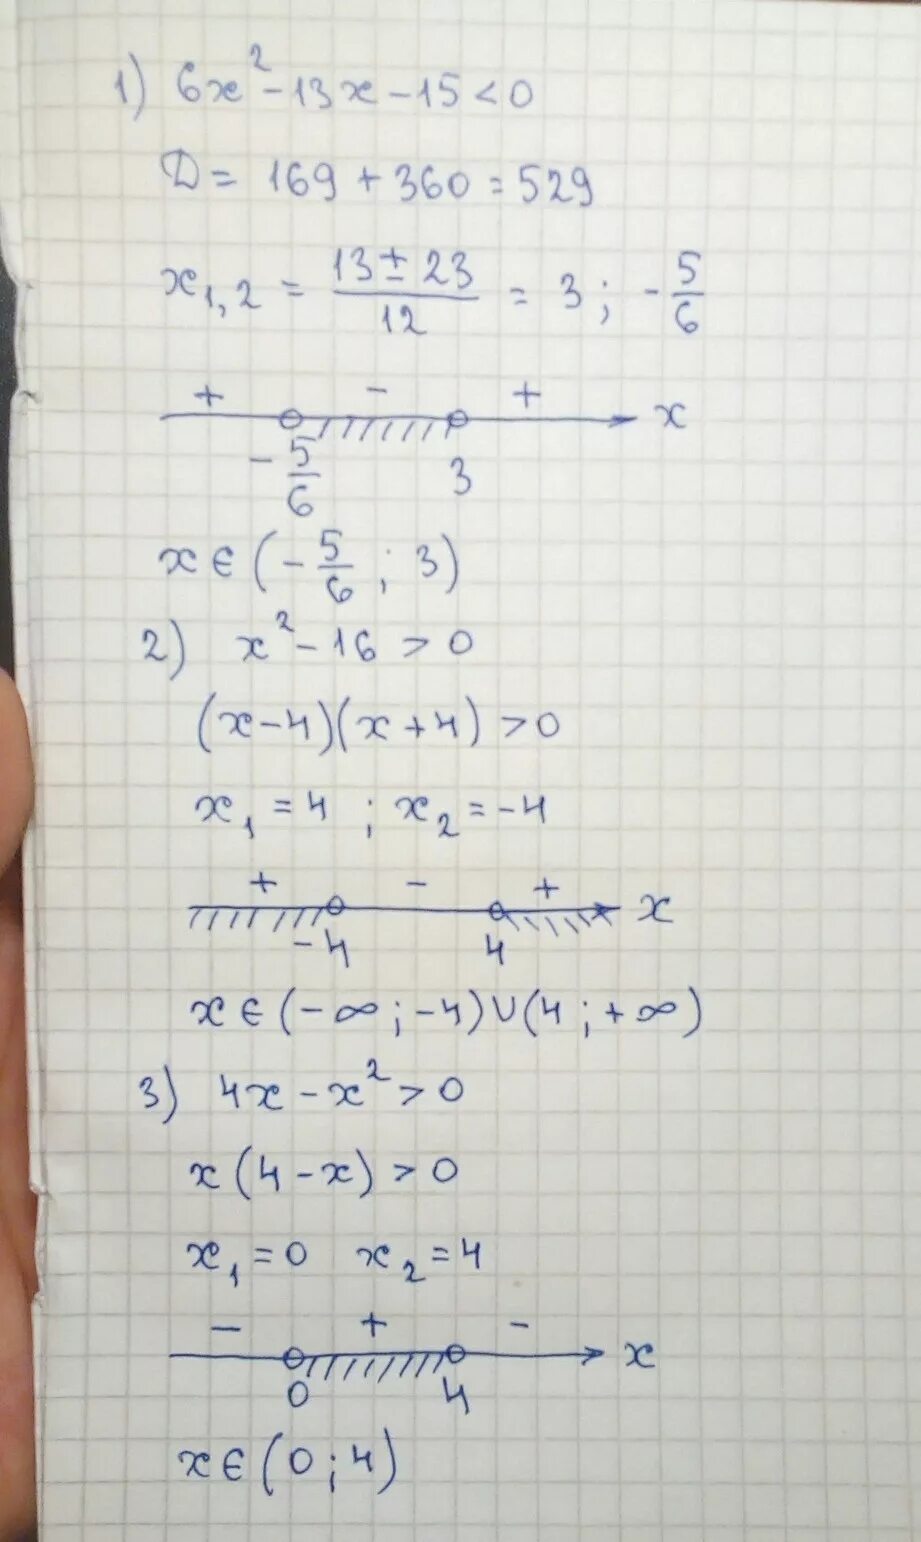 1) 6x² - 13x - 15 < 0
D = 169 + 360 = 529
x₁,₂ = (13 ± 23)/12 = 3 ; -5/6
+ - + x
-5/6 3
x ∈ (-5/6 ; 3)
2) x² - 16 > 0
(x - 4)(x + 4) > 0
x₁ = 4 ; x₂ = -4
+ - + x
-4 4
x ∈ (-∞ ; -4) ∪ (4 ; +∞)
3) 4x - x² > 0
x (4 - x) > 0
x₁ = 0 x₂ = 4
- + - x
0 4
x ∈ (0 ; 4)